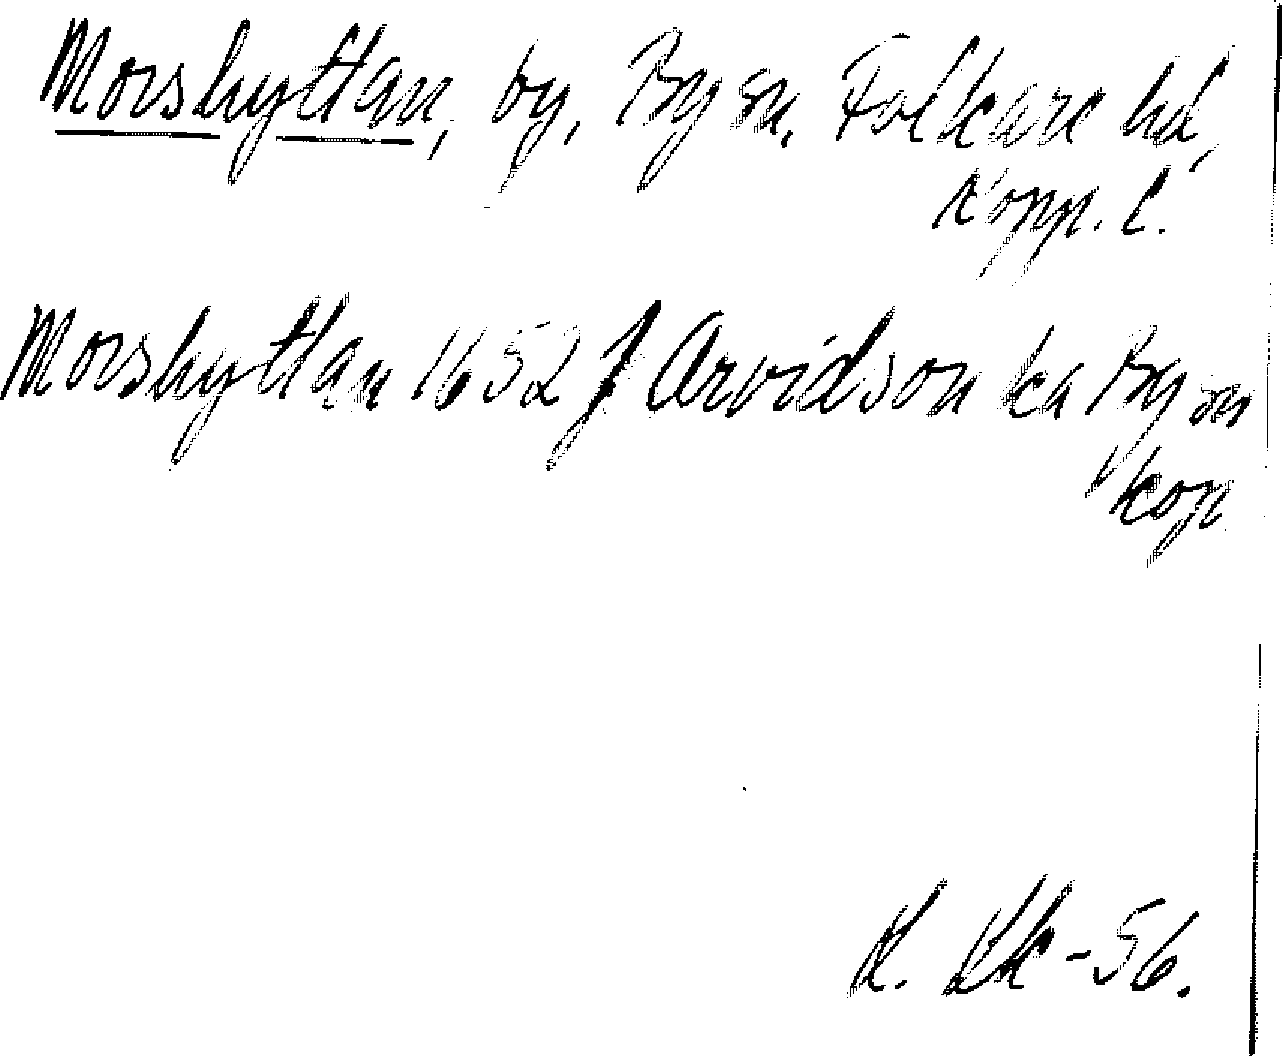 Morshyttan, by, By sn, Folkare hd,
Kopp. l.
Morshyttan 1652 J Arvidson ka By sn
kop
K. Kk -56.